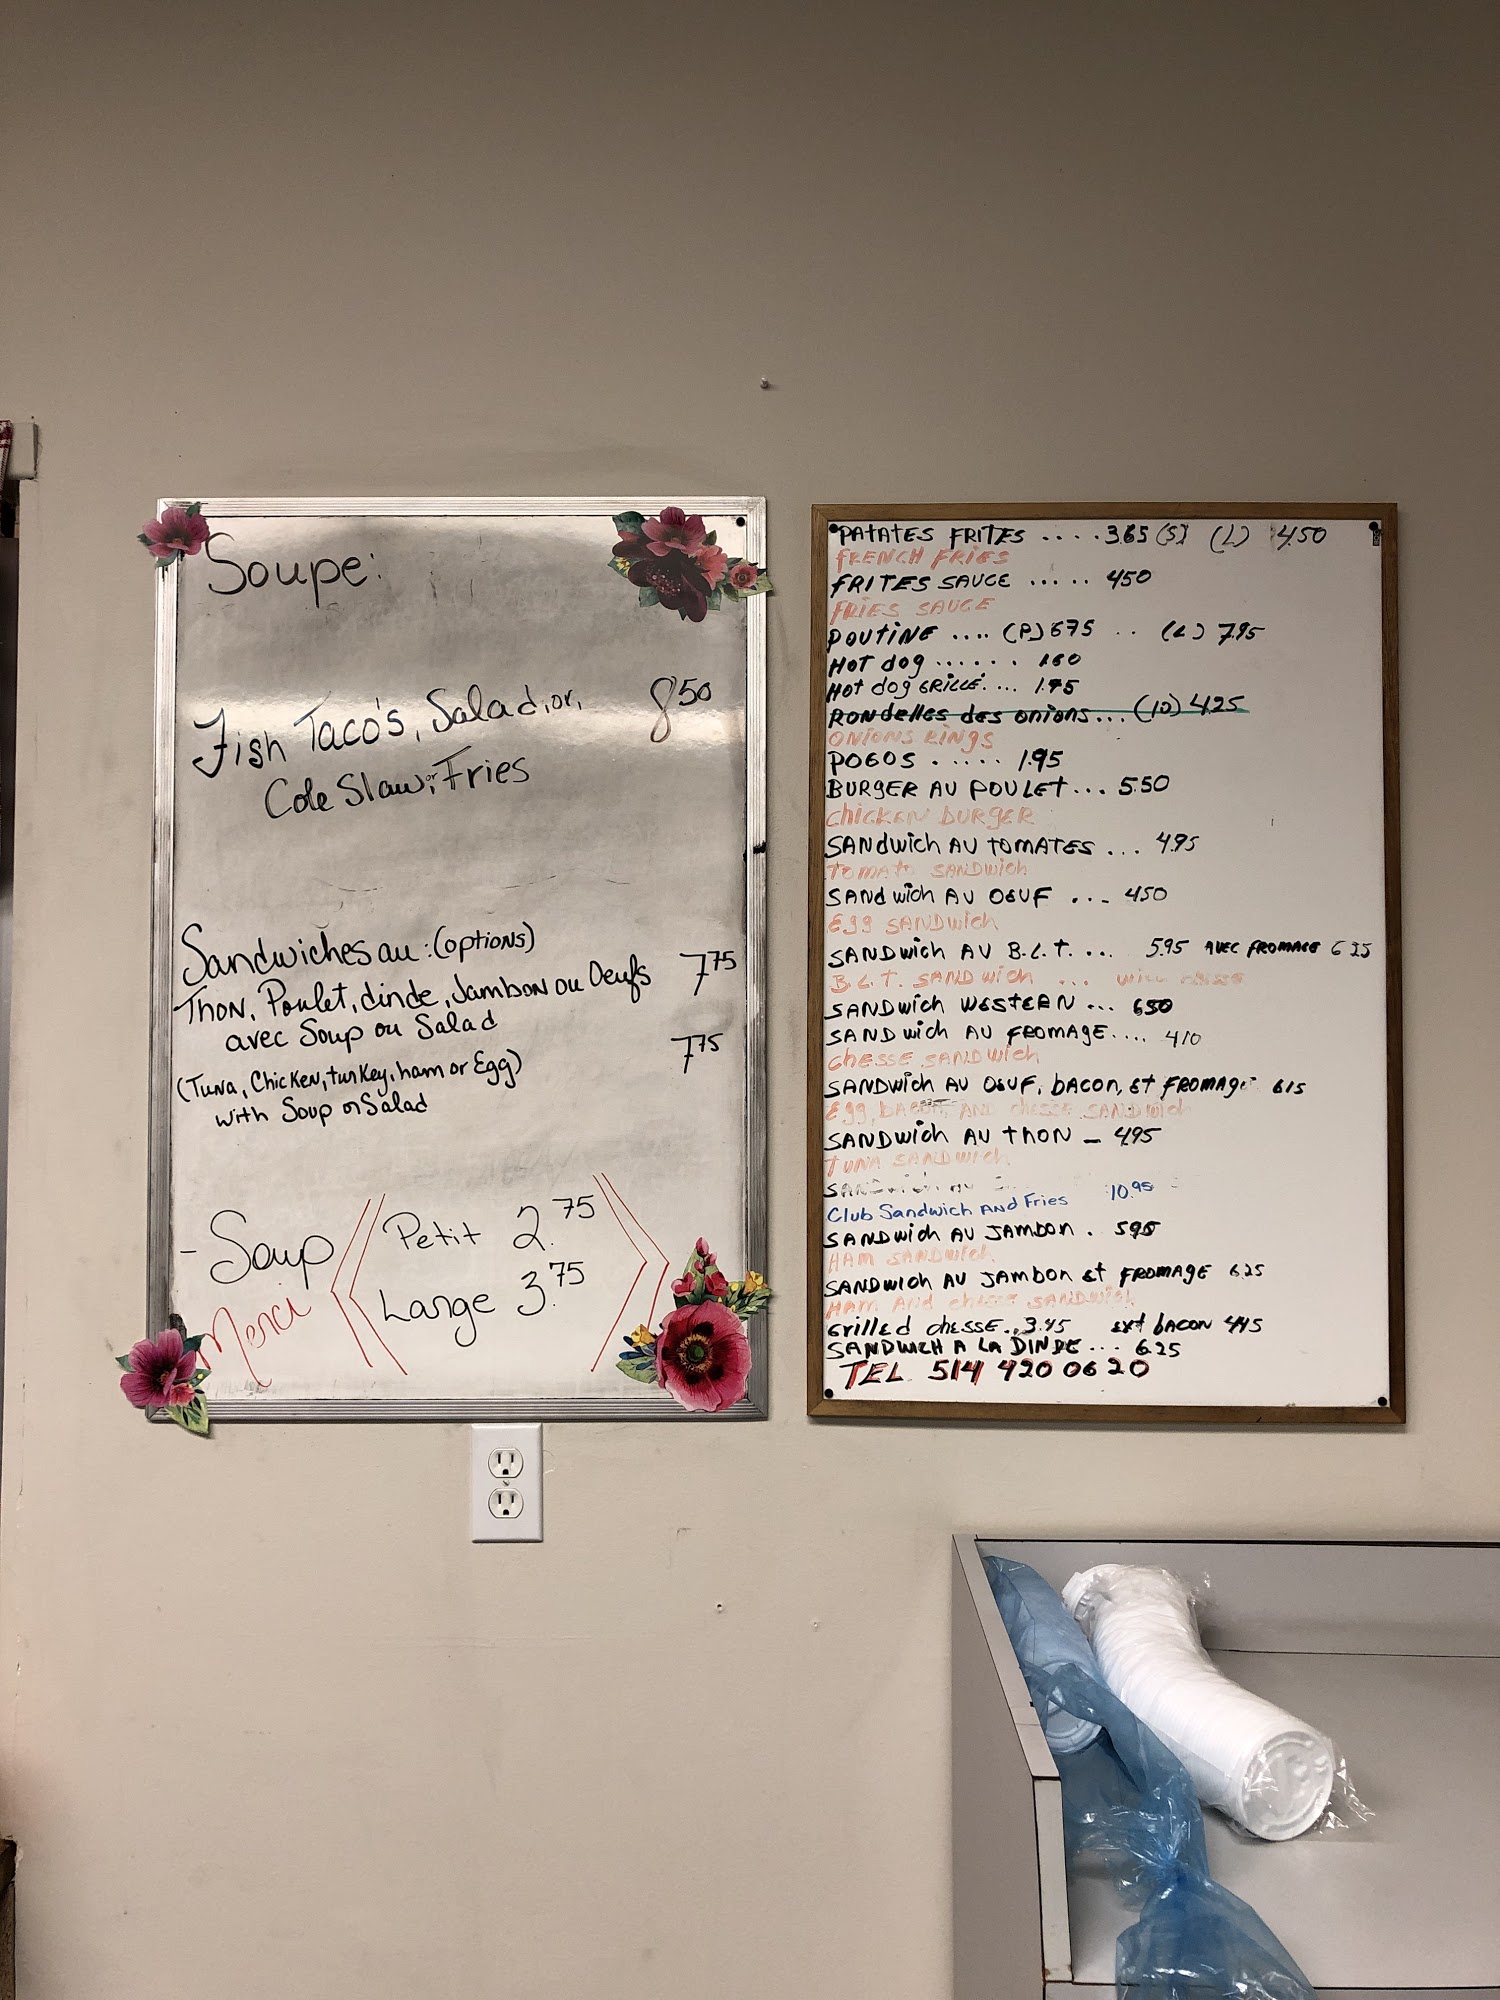 Soupe:
Fish Taco's, Salad, or, 8 50
Cole Slaw, or Fries
Sandwiches au: (options)
Thon, Poulet, dinde, Jambon ou Oeufs 7 75
avec Soup ou Salad
(Tuna, Chicken, turkey, ham or Egg) 7 75
with Soup or Salad
- Soup
Petit 2.75
Large 3.75
Merci
PATATES FRITES .... 365 (S) (L) 450
FRENCH FRIES
FRITES SAUCE ..... 450
FRIES SAUCE
POUTINE .... (P) 675 .. (L) 795
Hot dog ......
Hot dog GRILLÉ.... 1.95
RONdelles des onions... (10) 425
ONIONS RINGS
POGOS ..... 1.95
BURGER AU POULET... 550
Chicken BURGER
SANdwich AU TOMATES ... 495
TOMATO SANDwich
SANdwich AU OEUF ... 450
Egg SANDwich
SANDwich AU B.L.T. ... 595 AVEC FROMAGE 635
B.L.T. SANDwich ... with chesse
SANDwich WESTERN ... 650
SANDwich AU FROMAGE.... 410
CHESSE SANDwich
SANDwich AU OEUF, bacon, et FROMAGE 615
Egg, bacon, AND chesse SANDwich
SANDwich AU thon - 495
TUNA SANDwich
SANDwich AU
Club Sandwich AND Fries 10.95
SANDwich AU JAMBON . 595
HAM SANDwich
SANDwich AU JAMbon et FROMAGE 625
HAM AND chesse SANDwich
Grilled chesse.. 3.45 ext bacon 445
SANDWICH A LA DINDE ... 625
TEL. 514 420 0620